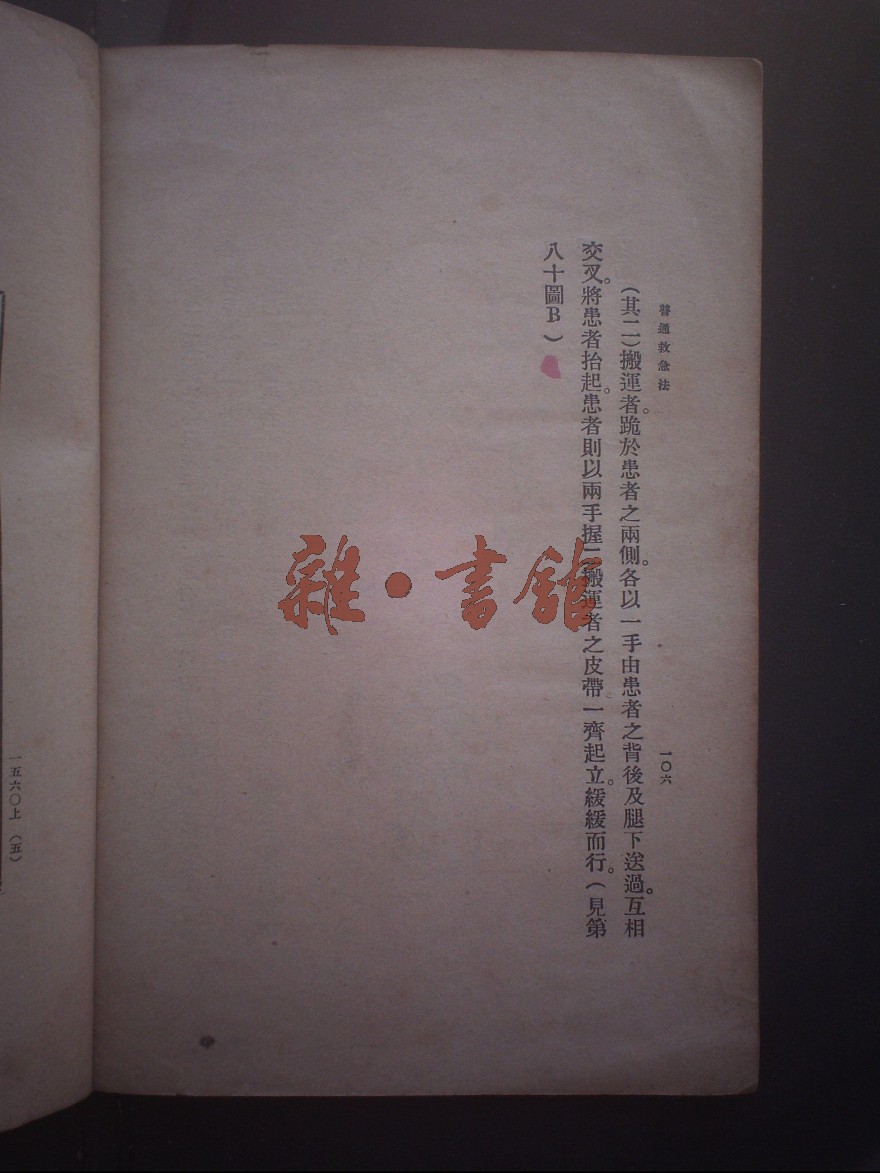 普通救急法
一〇六
(其二)搬運者。跪於患者之兩側。各以一手由患者之背後及腿下送過。互相
交叉。將患者抬起。患者則以兩手握二搬運者之皮帶一齊起立。緩緩而行。(見第
八十圖B)
雜・書館
一五六〇上(五)